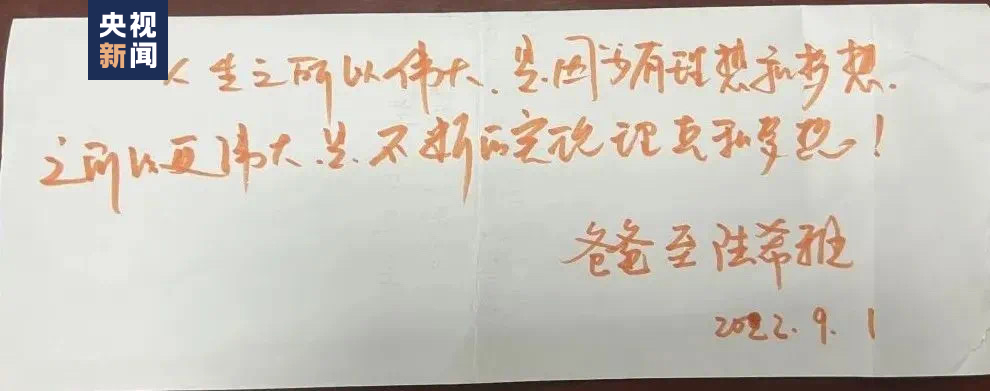 央视
新闻
人生之所以伟大、是因为有理想和梦想、
之所以更伟大、是、不断的实现理想和梦想!
爸爸至陆希雅
2022.9.1